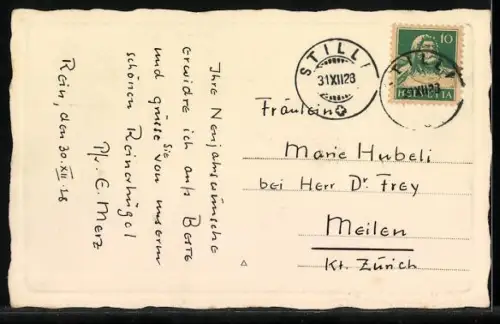 Ihre Neujahrswünsche
erwidre ich aufs Beste
und grüsse Sie von unserm
schönen Reinerhügel
Pfr. E. Merz
Rein, den 30. XII. 28
STILLI
31 XII 28
10
HELVETIA
STILLI
XII 28
Fräulein
Marie Hubeli
bei Herr Dr Frey
Meilen
Kt. Zürich